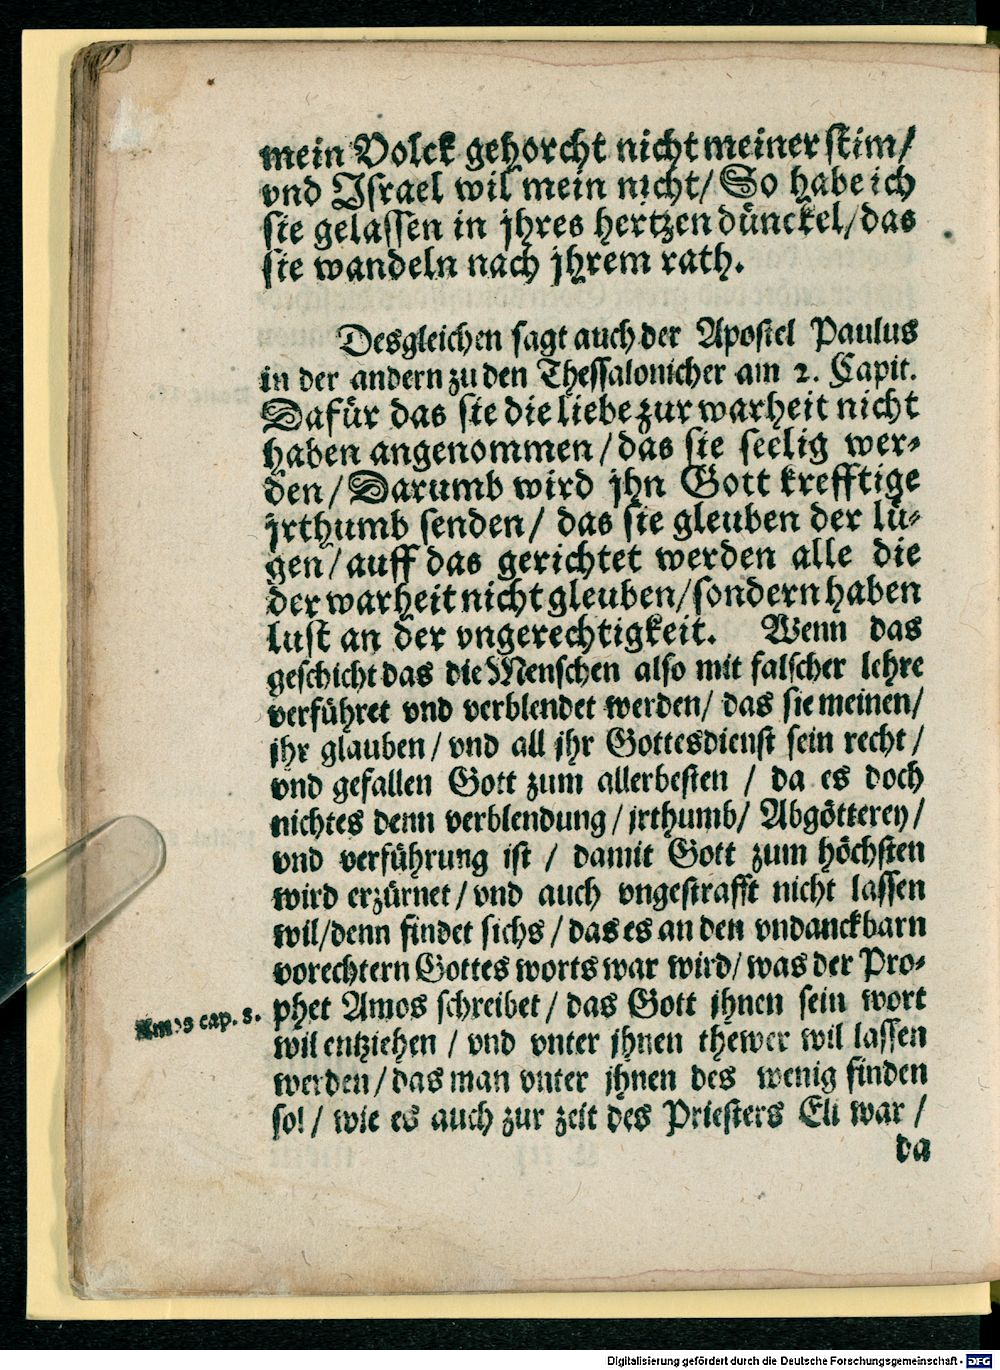 mein Volck gehorcht nicht meiner stim/
vnd Israel wil mein nicht/ So habe ich
sie gelassen in jhres hertzen dünckel/das
sie wandeln nach jhrem rath.
Desgleichen sagt auch der Apostel Paulus
in der andern zu den Thessalonicher am 2. Capit.
Dafür das sie die liebe zur warheit nicht
haben angenommen/das sie seelig wer-
den/ Darumb wird jhn Gott krefftige
jrthumb senden/ das sie gleuben der lü-
gen/auff das gerichtet werden alle die
der warheit nicht gleuben/sondern haben
lust an der vngerechtigkeit. Wenn das
geschicht das die Menschen also mit falscher lehre
verführet vnd verblendet werden/ das sie meinen/
jhr glauben/ vnd all jhr Gottesdienst sein recht/
vnd gefallen Gott zum allerbesten / da es doch
nichtes denn verblendung/jrthumb/ Abgötterey/
vnd verführung ist / damit Gott zum höchsten
wird erzürnet/vnd auch vngestrafft nicht lassen
wil/denn findet sichs/das es an den vndanckbarn
vorechtern Gottes worts war wird/was der Pro-
phet Amos schreibet/ das Gott jhnen sein wort
Amos cap. 8.
wil entziehen / vnd vnter jhnen thewer wil lassen
werden/das man vnter jhnen des wenig finden
sol/ wie es auch zur zeit des Priesters Eli war /
da
Digitalisierung gefördert durch die Deutsche Forschungsgemeinschaft - DFG